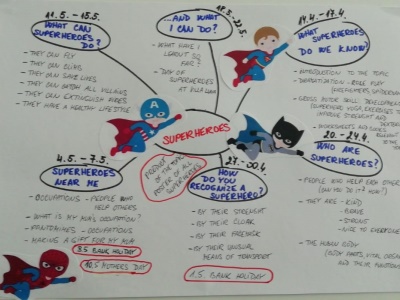 11.5. - 15.5.
WHAT CAN
SUPERHEROES
DO?
- THEY CAN FLY
- THEY CAN CLIMB
- THEY CAN SAVE LIVES
- THEY CAN CATCH ALL VILLAINS
- THEY CAN EXTINGUISH FIRES
- THEY HAVE A HEALTHY LIFESTYLE
18.5. - 22.5.
...AND WHAT
I CAN DO?
- WHAT HAVE I
LEARNT SO
FAR?
- DAY OF
SUPERHEROES
AT
14.4. - 17.4.
WHAT
SUPERHEROES
DO WE KNOW?
- INTRODUCTION TO THE TOPIC
- DRAMATIZATION - ROLE PLAY
- GROSS MOTOR SKILL DEVELOPMENT
SUPERHERO YOGA, EXERCISES TO
IMPROVE STRENGTH AND
- WORKSHEETS AND
20. - 24.4.
WHO ARE
SUPERHEROES?
- PEOPLE WHO HELP EACH OTHER
(CAN YOU DO IT NOW?)
- THEY ARE - KIND
- BRAVE
- STRONG
- NICE TO EVERYONE
- THE HUMAN BODY
(BODY PARTS, VITAL ORGANS
AND THEIR FUNCTIONS)
SUPERHEROES
PRODUCT
OF THE TOPIC
POSTER OF ALL
SUPERHEROES
4.5. - 7.5.
SUPERHEROES
NEAR ME
- OCCUPATIONS - PEOPLE WHO
HELP OTHERS
- WHAT IS MY MUM'S OCCUPATION?
- PANTOMIMES - OCCUPATIONS
- MAKING A GIFT FOR MY MUM
8.5 BANK HOLIDAY
10.5 MOTHERS DAY
27. - 30.4.
HOW
DO YOU
RECOGNIZE A
SUPERHERO?
- BY THEIR STRENGHT
- BY THEIR CLOAK
- BY THEIR
- BY THEIR UNUSUAL
MEANS OF TRANSPORT
1.5. BANK HOLIDAY